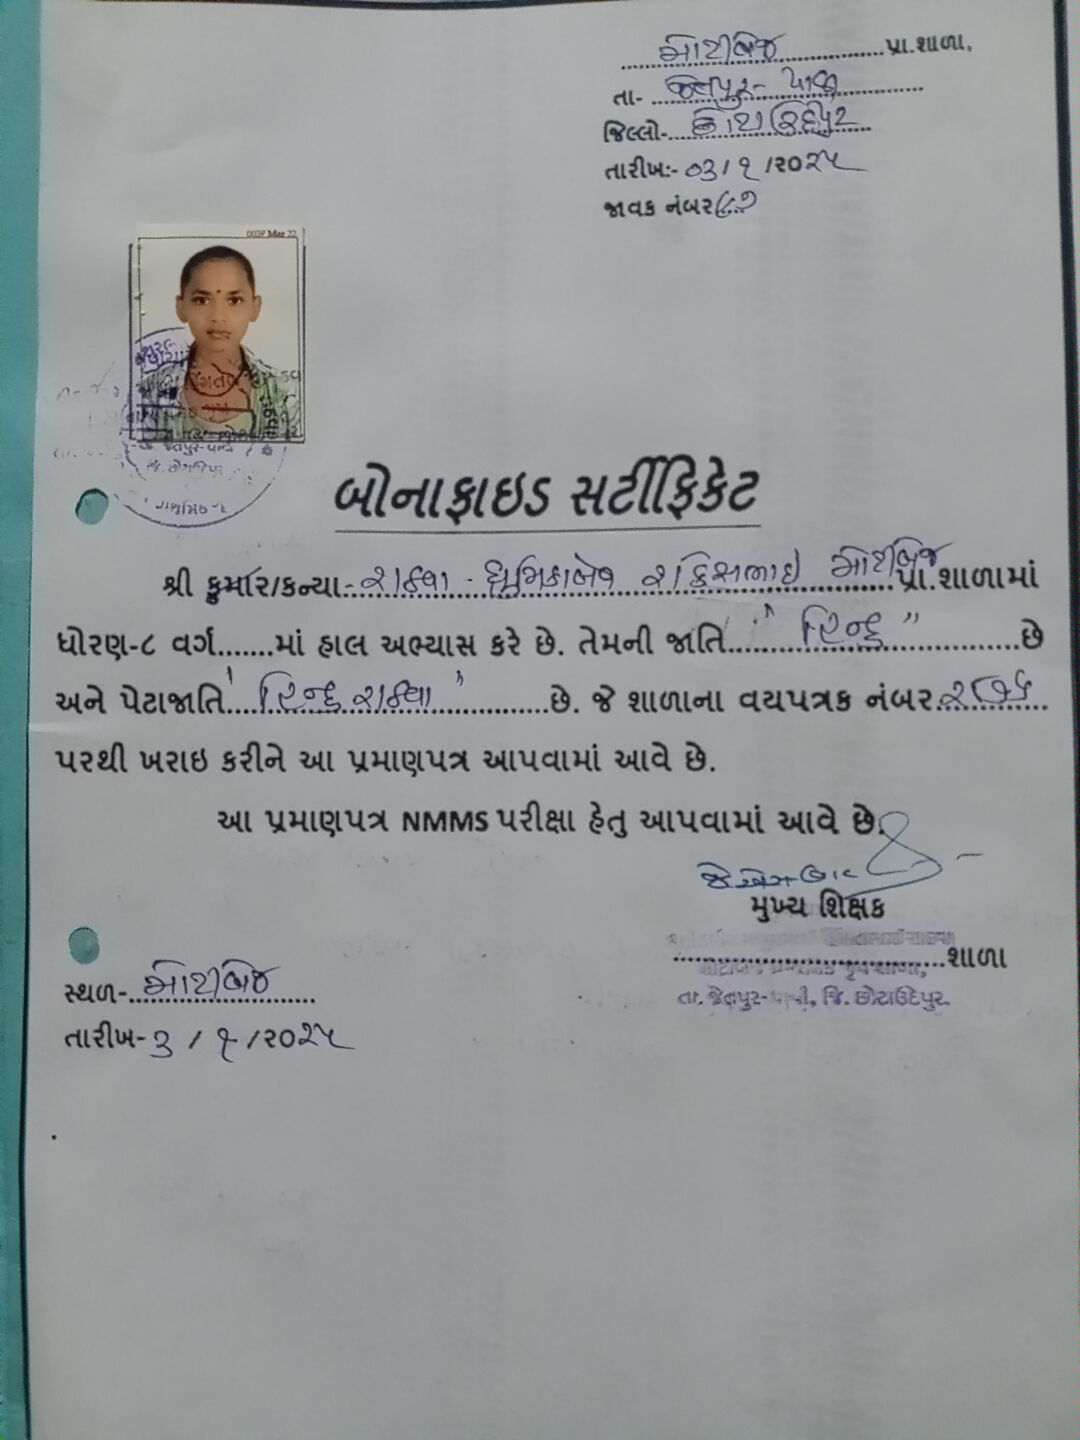 મોટીબેજ પ્રા.શાળા.
તા- જેતપુર- પાવી
જિલ્લો- છોટાઉદેપુર
તારીખ:- ૦૩/૧/૨૦૨૫
જાવક નંબર
બોનાફાઇડ સર્ટીફિકેટ
શ્રી કુમાર/કન્યા:- રાઠવા - ભુમિકાબેન રાકેશભાઇ મોટીબેજ પ્રા.શાળામાં
ધોરણ-૮ વર્ગ.......માં હાલ અભ્યાસ કરે છે. તેમની જાતિ "હિન્દુ" છે
અને પેટાજાતિ "હિન્દુ રાઠવા" છે. જે શાળાના વયપત્રક નંબર
પરથી ખરાઇ કરીને આ પ્રમાણપત્ર આપવામાં આવે છે.
આ પ્રમાણપત્ર NMMS પરીક્ષા હેતુ આપવામાં આવે છે.
મુખ્ય શિક્ષક
શાળા
તા. જેતપુર-પાવી, જિ. છોટાઉદેપુર.
સ્થળ- મોટીબેજ
તારીખ- ૩ / ૧ /૨૦૨૫